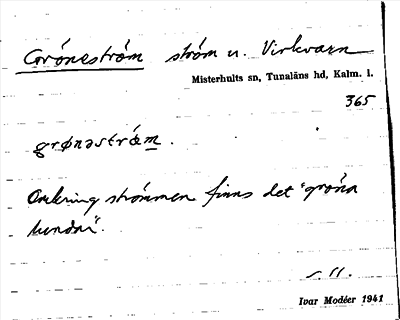 Gröneström ström n. Virkvarn
Misterhults sn, Tunaläns hd, Kalm. l.
365
grønəstrǿm.
Omkring strömmen finns det "gröna
lundar".
s. 11.
Ivar Modéer 1941